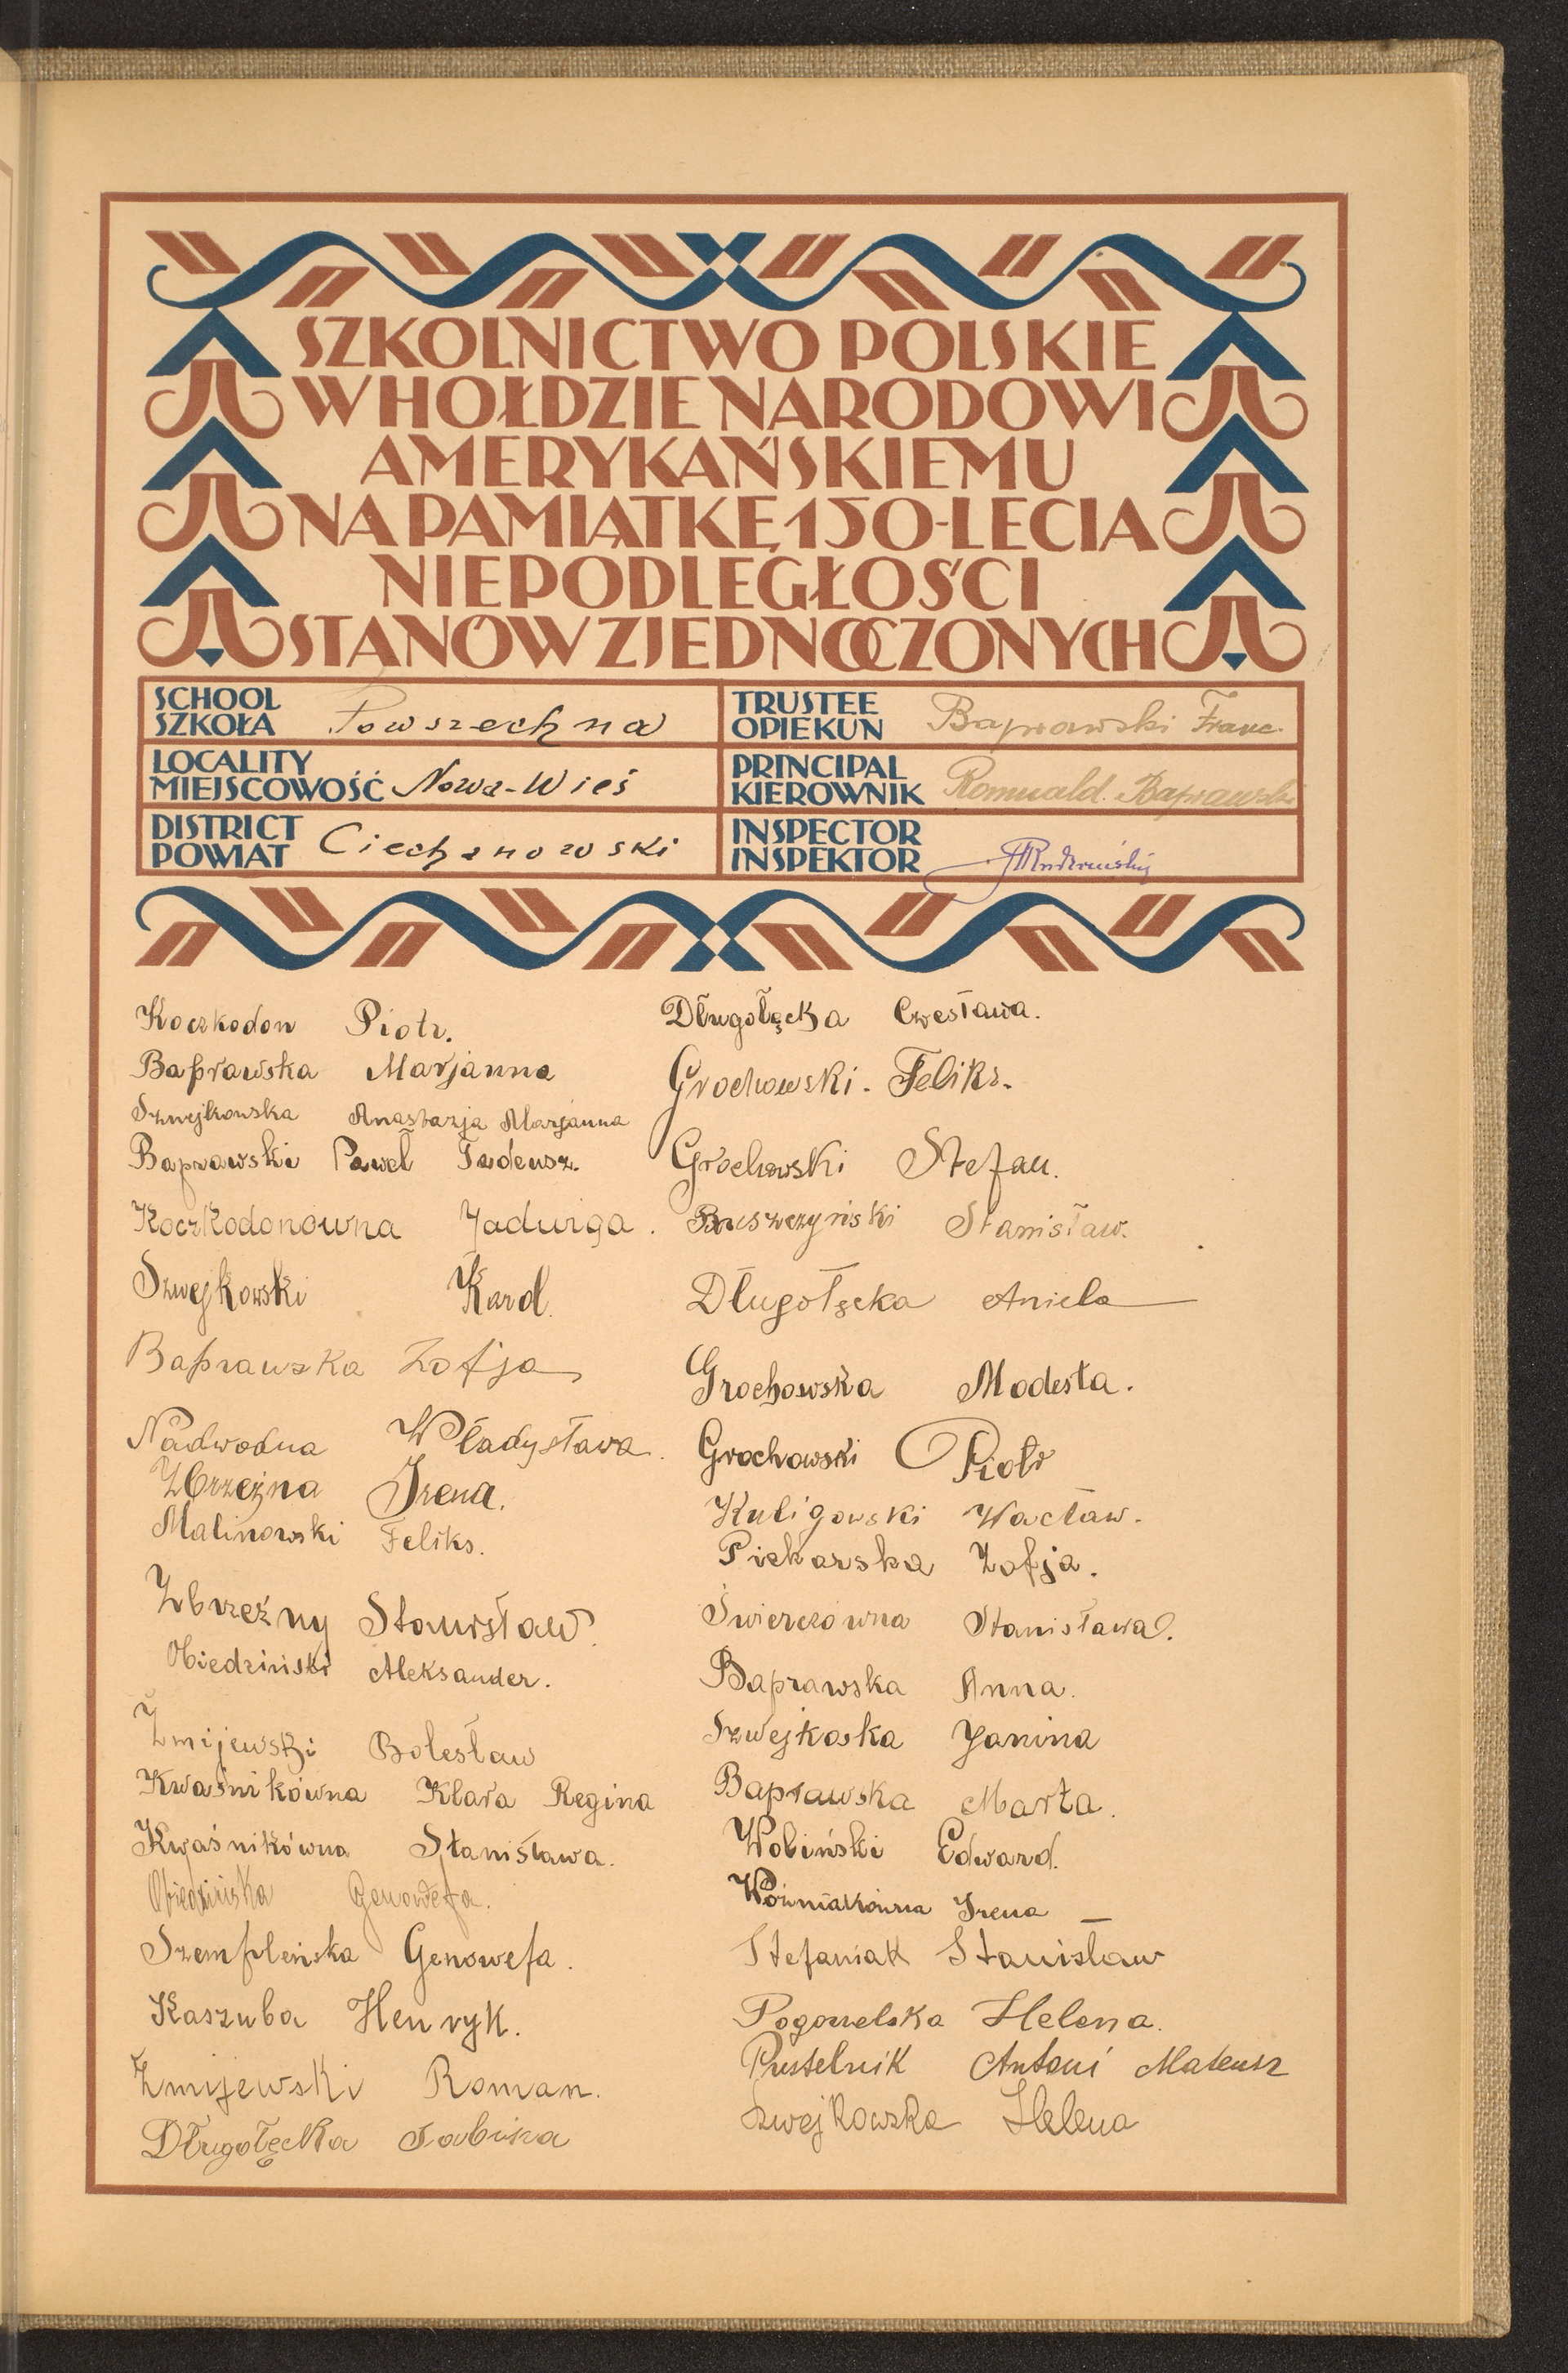 SZKOLNICTWO POLSKIE
W HOŁDZIE NARODOWI
AMERYKAŃSKIEMU
NA PAMIĄTKĘ 150-LECIA
NIEPODLEGŁOŚCI
STANÓW ZJEDNOCZONYCH
SCHOOL
SZKOŁA Powszechna
TRUSTEE
OPIEKUN Baprawski Franc.
LOCALITY
MIEJSCOWOŚĆ Nowa-Wieś
PRINCIPAL
KIEROWNIK Romuald. Baprawski
DISTRICT
POWIAT Ciechanowski
INSPECTOR
INSPEKTOR
Koczkodon Piotr.
Baprawska Marjanna
Szwejkowska Anastazja Marjanna
Baprawski Paweł Tadeusz.
Koczkodonówna Jadwiga.
Szwejkowski Karol
Baprawska Zofja
Nadwodna Władysława.
Zbrzeżna Irena.
Malinowski Feliks.
Zbrzeźny Stanisław.
Obiedziński Aleksander.
Żmijewski Bolesław
Kwaśnikówna Klara Regina
Kwaśnikówna Stanisława.
Obiedzińska Genowefa.
Szemplińska Genowefa.
Kaszuba Henryk.
Żmijewski Roman.
Długołęcka Sabina
Długołęcka Czesława.
Grochowski. Feliks.
Grochowski Stefan.
Stanisław.
Długołęcka Aniela
Grochowska Modesta.
Grochowski Piotr
Kuligowski Wacław.
Piekarska Zofja.
Świerczówna Stanisława.
Baprawska Anna.
Szwejkoska Janina
Baprawska Marta.
Woliński Edward.
Woźniakówna Irena
Stefaniak Stanisław
Pogorzelska Helena.
Pustelnik Antoni Mateusz
Szwejkowska Helena